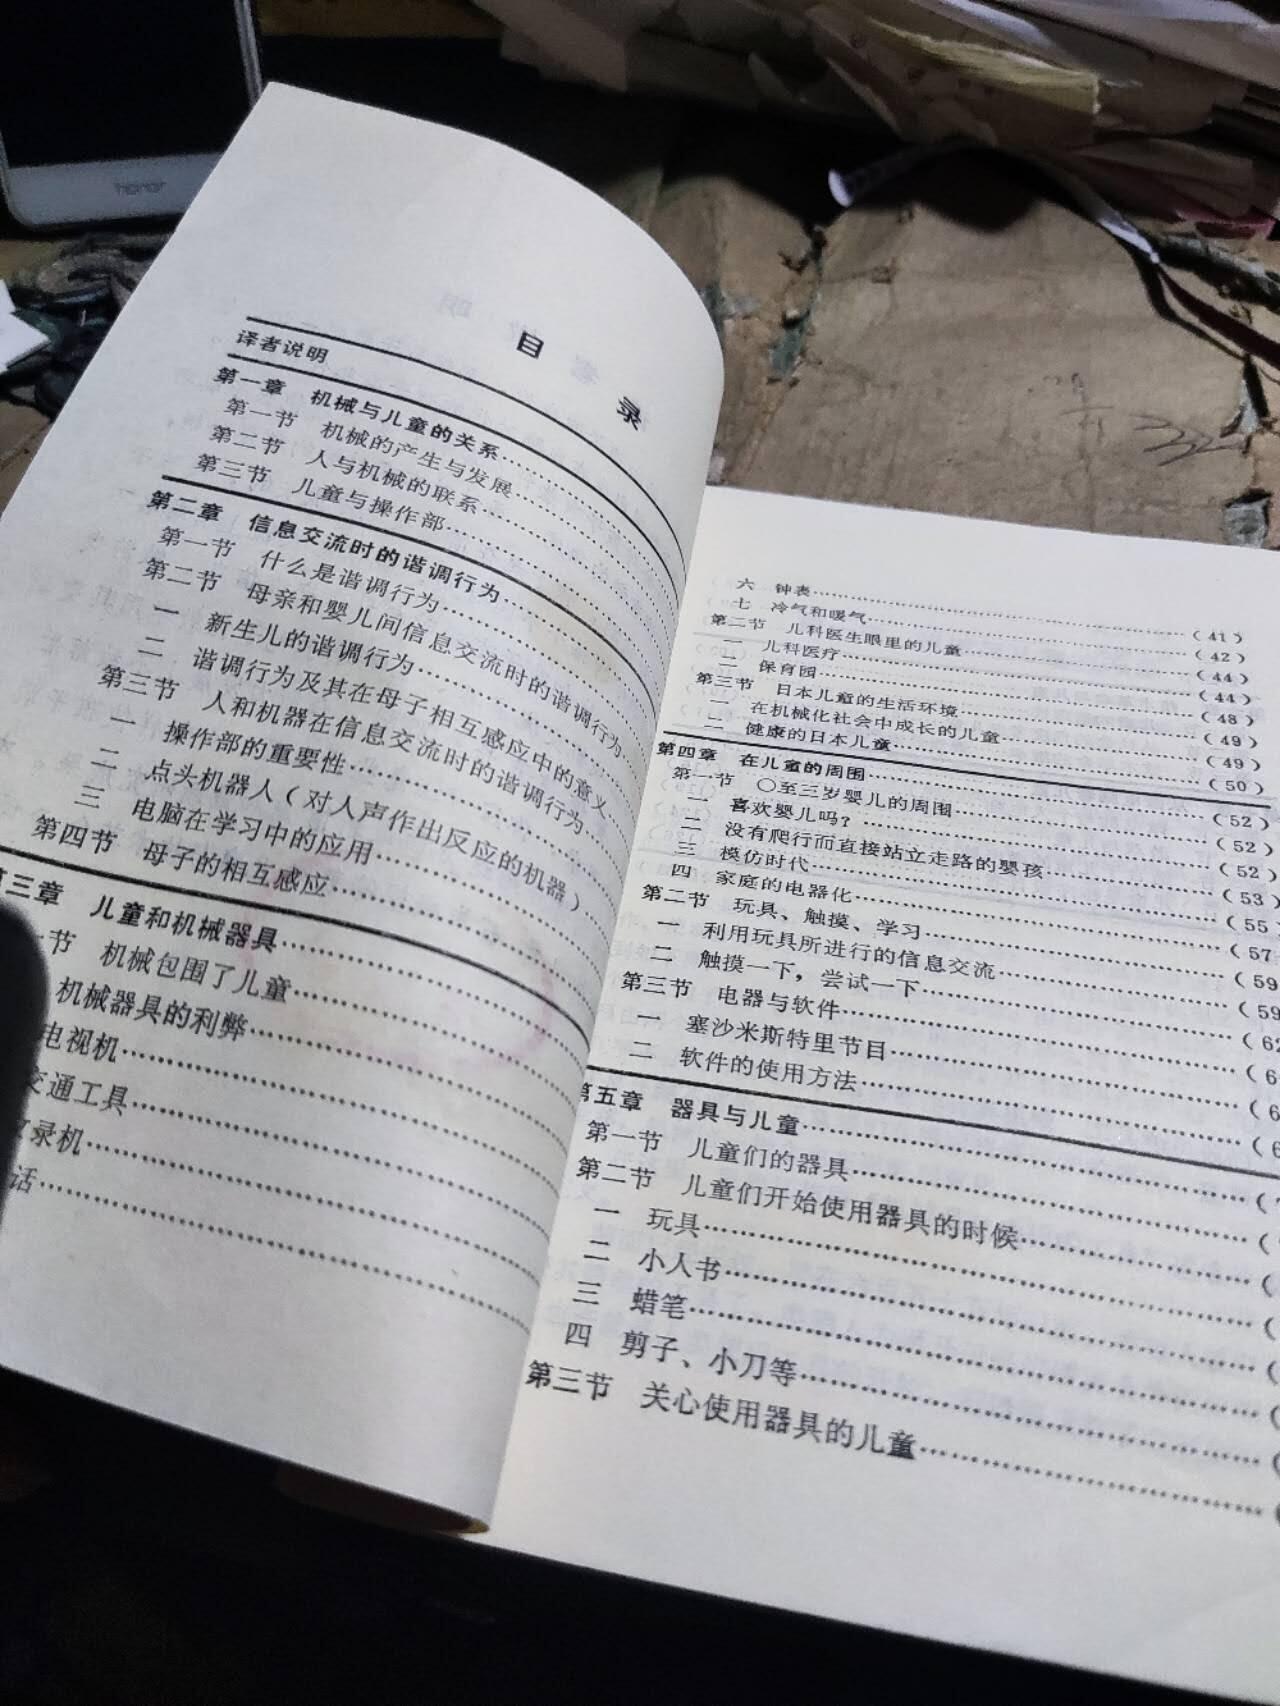 honor
目录
译者说明
第一章 机械与儿童的关系
第一节 机械的产生与发展
第二节 人与机械的联系
第三节 儿童与操作部
第二章 信息交流时的谐调行为
第一节 什么是谐调行为
第二节 母亲和婴儿间信息交流时的谐调行为
一 新生儿的谐调行为
二 谐调行为及其在母子相互感应中的意义
第三节 人和机器在信息交流时的谐调行为
一 操作部的重要性
二 点头机器人(对人声作出反应的机器)
三 电脑在学习中的应用
第四节 母子的相互感应
三章 儿童和机械器具
节 机械包围了儿童
机械器具的利弊
电视机
交通工具
录机
话
六 钟表……(41)
七 冷气和暖气……(42)
第二节 儿科医生眼里的儿童……(44)
一 儿科医疗……(44)
二 保育园……(48)
第三节 日本儿童的生活环境……(49)
一 在机械化社会中成长的儿童……(49)
二 健康的日本儿童……(50)
第四章 在儿童的周围……(52)
第一节 〇至三岁婴儿的周围……(52)
一 喜欢婴儿吗?……(52)
二 没有爬行而直接站立走路的婴孩……(53)
三 模仿时代……(55)
四 家庭的电器化……(57
第二节 玩具、触摸、学习……(59
一 利用玩具所进行的信息交流……(59
二 触摸一下,尝试一下……(62
第三节 电器与软件……(6
一 塞沙米斯特里节目……(6
二 软件的使用方法……(6
五章 器具与儿童……(
第一节 儿童们的器具……(
第二节 儿童们开始使用器具的时候……(
一 玩具……(
二 小人书……(
三 蜡笔……(
四 剪子、小刀等……(
第三节 关心使用器具的儿童……(